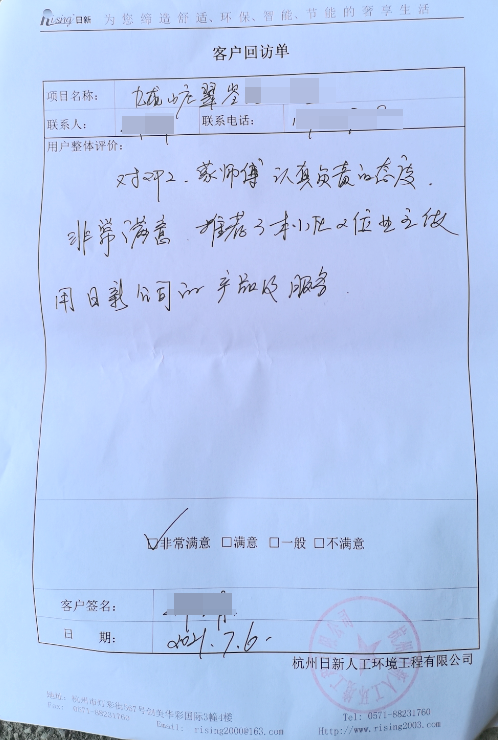 Rising 日新 为您缔造舒适、环保、智能、节能的奢享生活
客户回访单
项目名称： 九龙山庄翠岑
联系人： 联系电话：
用户整体评价：
对邓工、蒙师傅认真负责的态度，
非常满意 推荐了本小区2位业主使
用日新公司的产品及服务.
☑非常满意 □满意 □一般 □不满意
客户签名：
日 期： 2021.7.6.
杭州日新人工环境工程有限公司
Fax: 0571-88231760
Tel: 0571-88231760
Email: rising2000@163.com
Http://www.rising2003.com